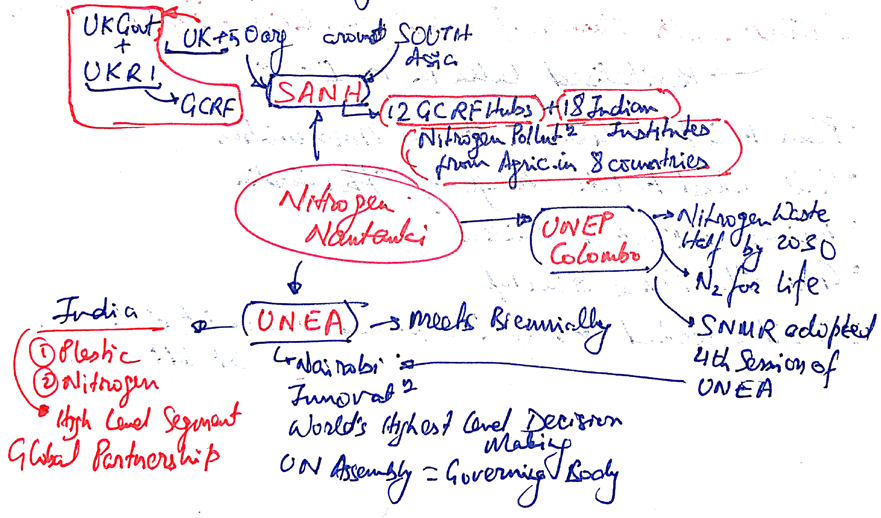 UK Govt
+
UKRI
GCRF
UK + 50 org around SOUTH
Asia
SANH
12 GCRF Hubs + 18 Indian
Nitrogen Pollutⁿ Institutes
from Agric. in 8 countries
Nitrogen
UNEP
Colombo
Nitrogen Waste
Half by 2030
N₂ for Life
SNMR adopted
4th Session of
UNEA
India
① Plastic
② Nitrogen
High Level Segment
Global Partnership
UNEA
meets Biennially
Nairobi
Innovatⁿ
World's Highest Level Decision
Making
UN Assembly = Governing Body